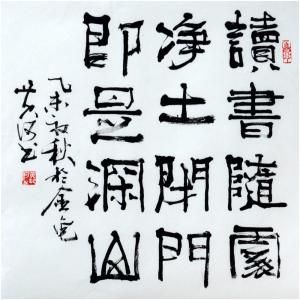 讀書隨處
净土閉門
即是深山
乙未初秋於金